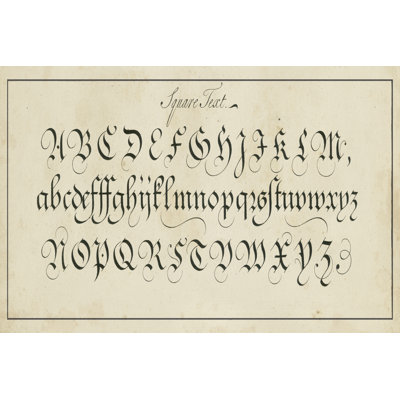 Square Text.
ABCDEFGHIJKLM,
abcdefffghijklmnopqrsſtuvwxyz
NOPQRSTVWXYZ.